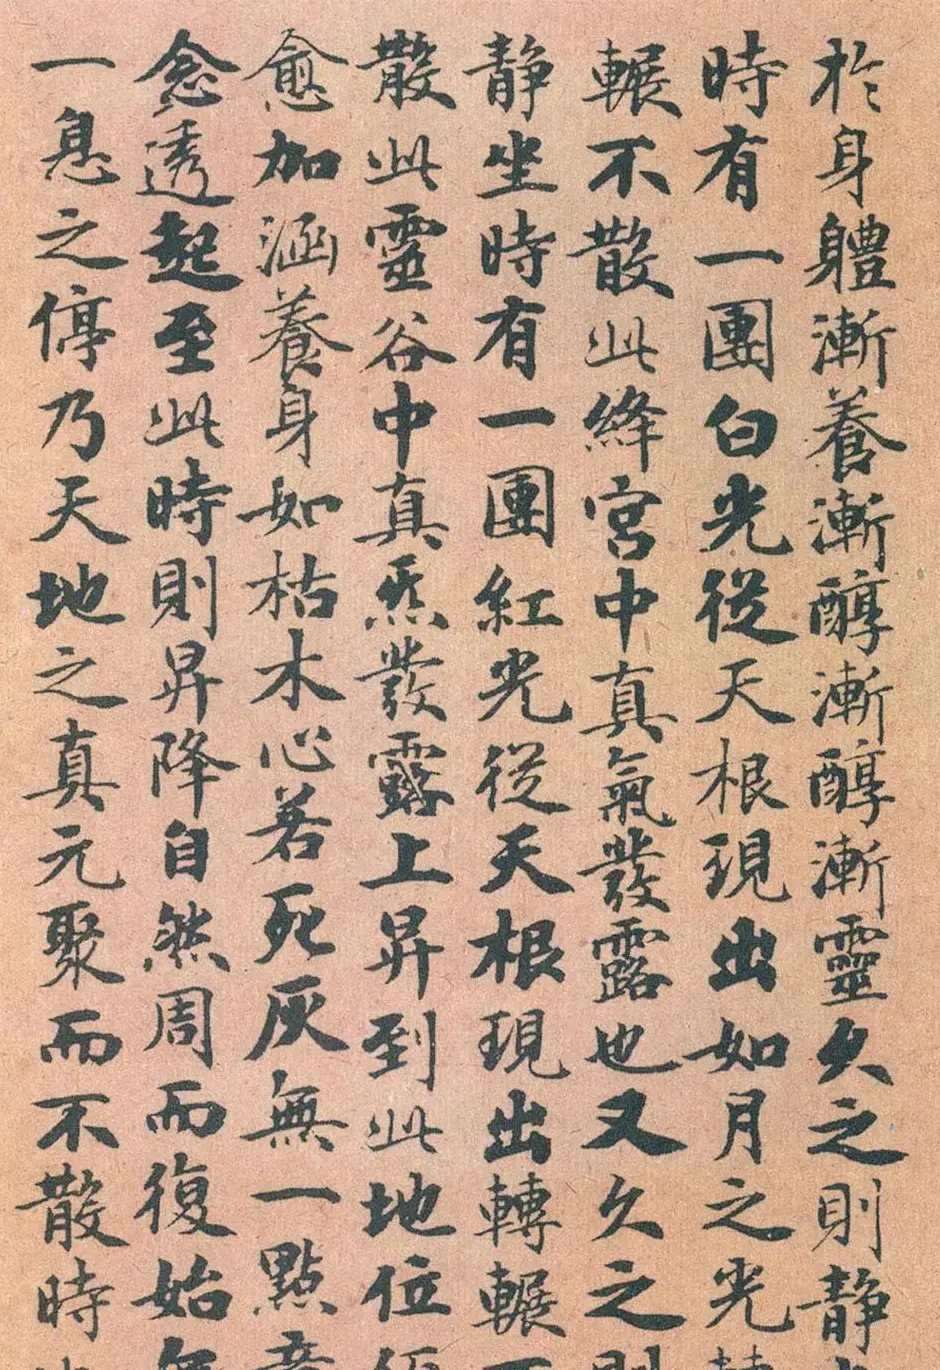 於身軆漸養漸醇漸醇漸靈久之則静
時有一團白光從天根現出如月之光
輾不散此絳宮中真氣發露也又久之
静坐時有一團紅光從天根現出轉輾
散此靈谷中真炁發露上昇到此地位
愈加涵養身如枯木心若死灰無一點
愈透起至此時則昇降自然周而復始
一息之停乃天地之真元聚而不散時